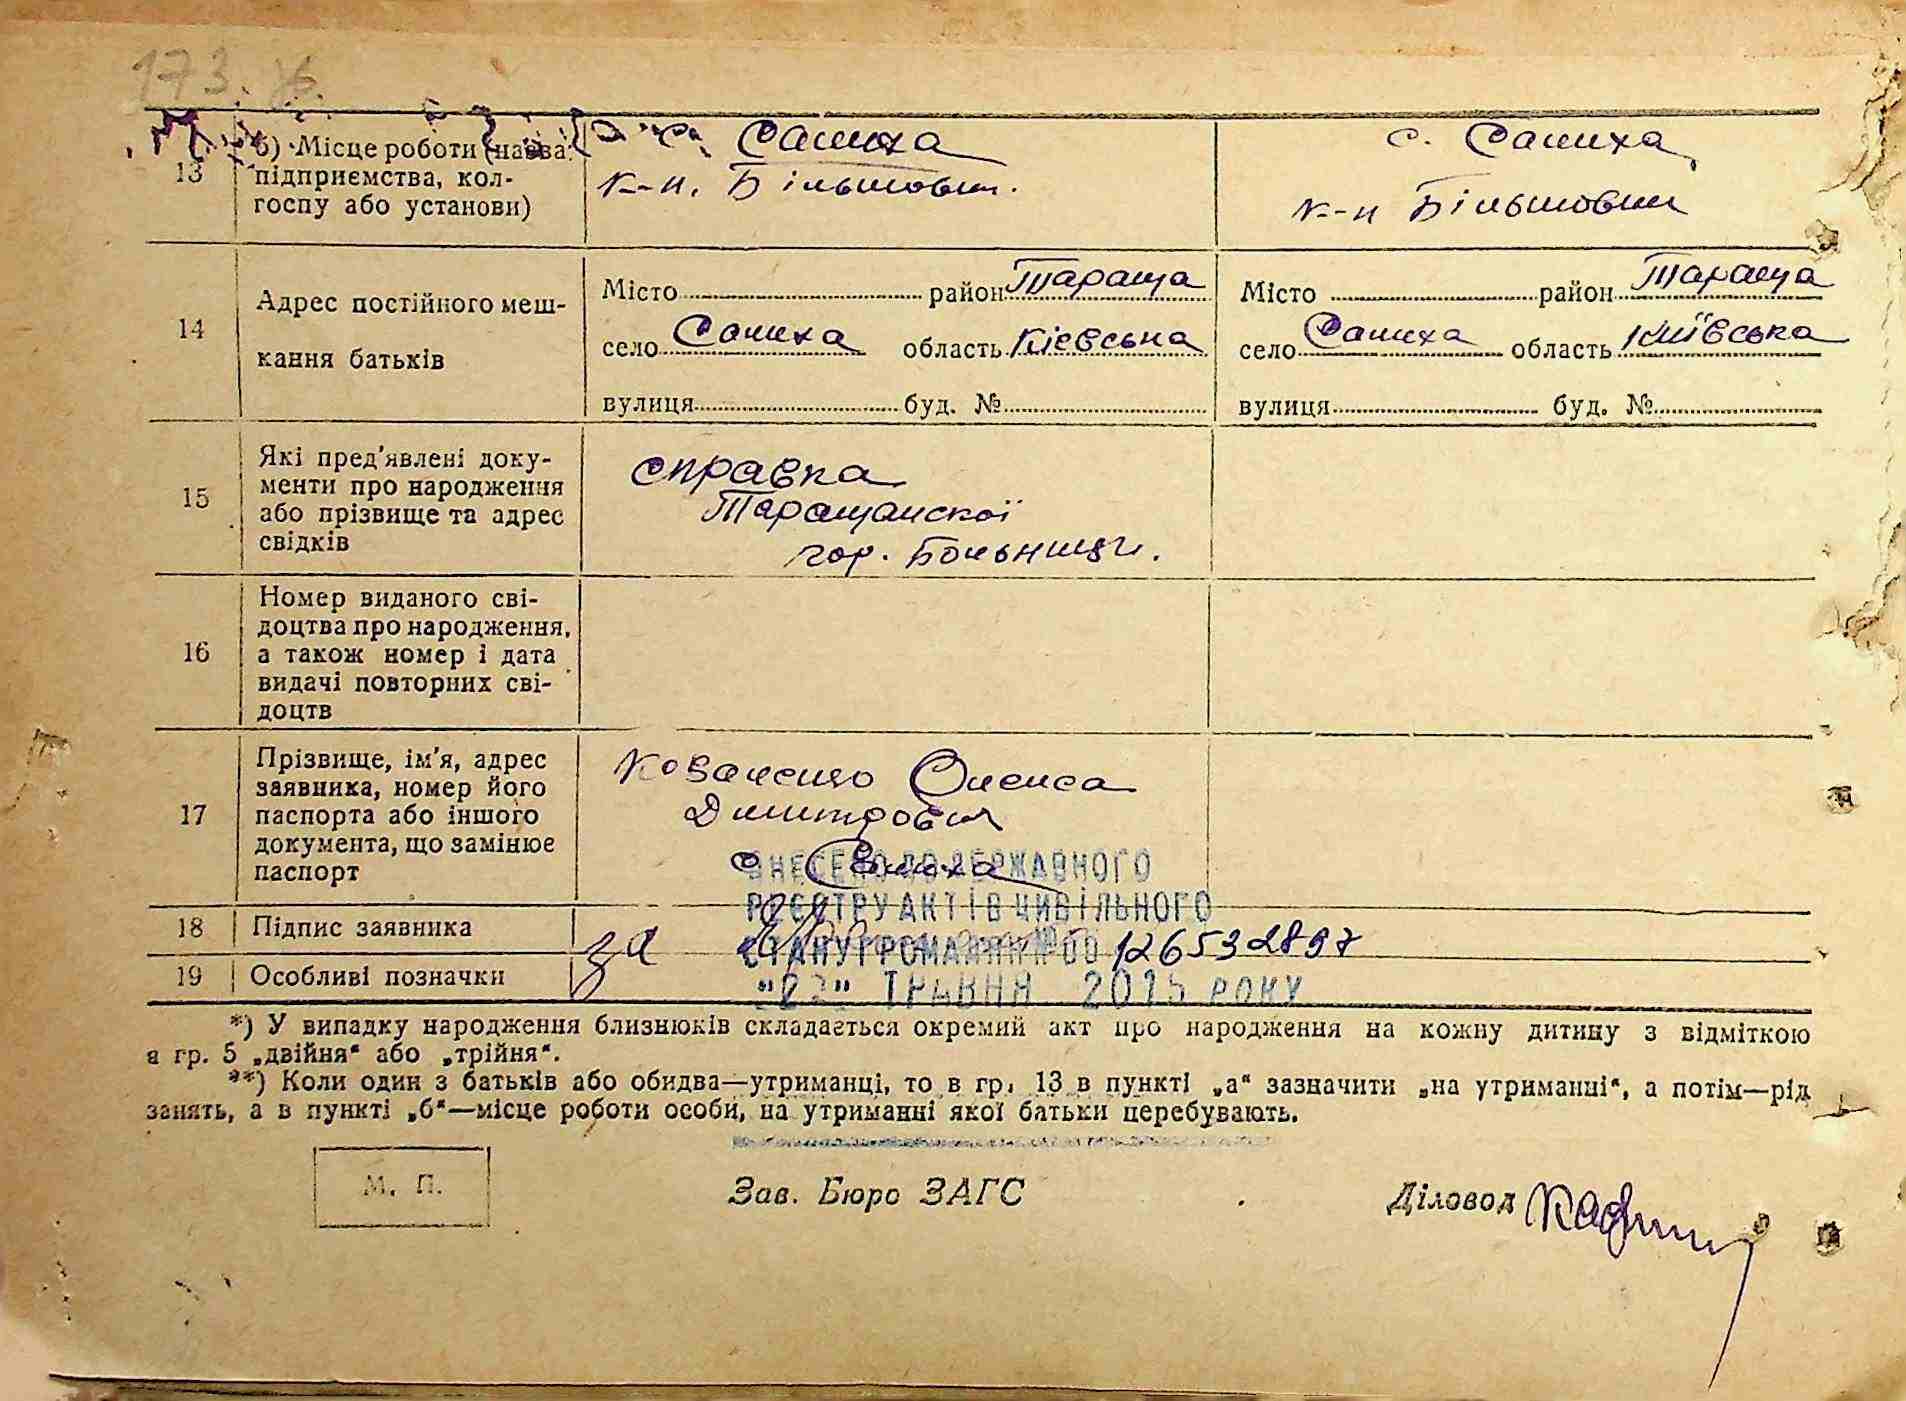 173.
13
б) Місце роботи (назва
підприємства, кол-
госпу або установи)
с. Салиха
к-п. Більшовик.
с. Салиха
к-п Більшовик
14
Адрес постійного меш-
кання батьків
Місто район Тараща
село Салиха область Кієвська
вулиця буд. №
Місто район Тараща
село Салиха область Київська
вулиця буд. №
15
Які пред'явлені доку-
менти про народження
або прізвище та адрес
свідків
справка
Таращанской
гор. Больници.
16
Номер виданого сві-
доцтва про народження,
а також номер і дата
видачі повторних сві-
доцтв
17
Прізвище, ім'я, адрес
заявника, номер його
паспорта або іншого
документа, що замінює
паспорт
Олекса
Дмитрович
с Салиха
ВНЕСЕНО ДО ДЕРЖАВНОГО
РЕЄСТРУ АКТІВ ЦИВІЛЬНОГО
СТАНУ ГРОМАДЯН № 00 126532897
ТРАВНЯ 2015 РОКУ
18 Підпис заявника за
19 Особливі позначки
*) У випадку народження близнюків складається окремий акт про народження на кожну дитину з відміткою
в гр. 5 „двійня“ або „трійня“.
**) Коли один з батьків або обидва—утриманці, то в гр. 13 в пункті „а“ зазначити „на утриманні“, а потім—рід
занять, а в пункті „б“—місце роботи особи, на утриманні якої батьки перебувають.
М. П.
Зав. Бюро ЗАГС
Діловод